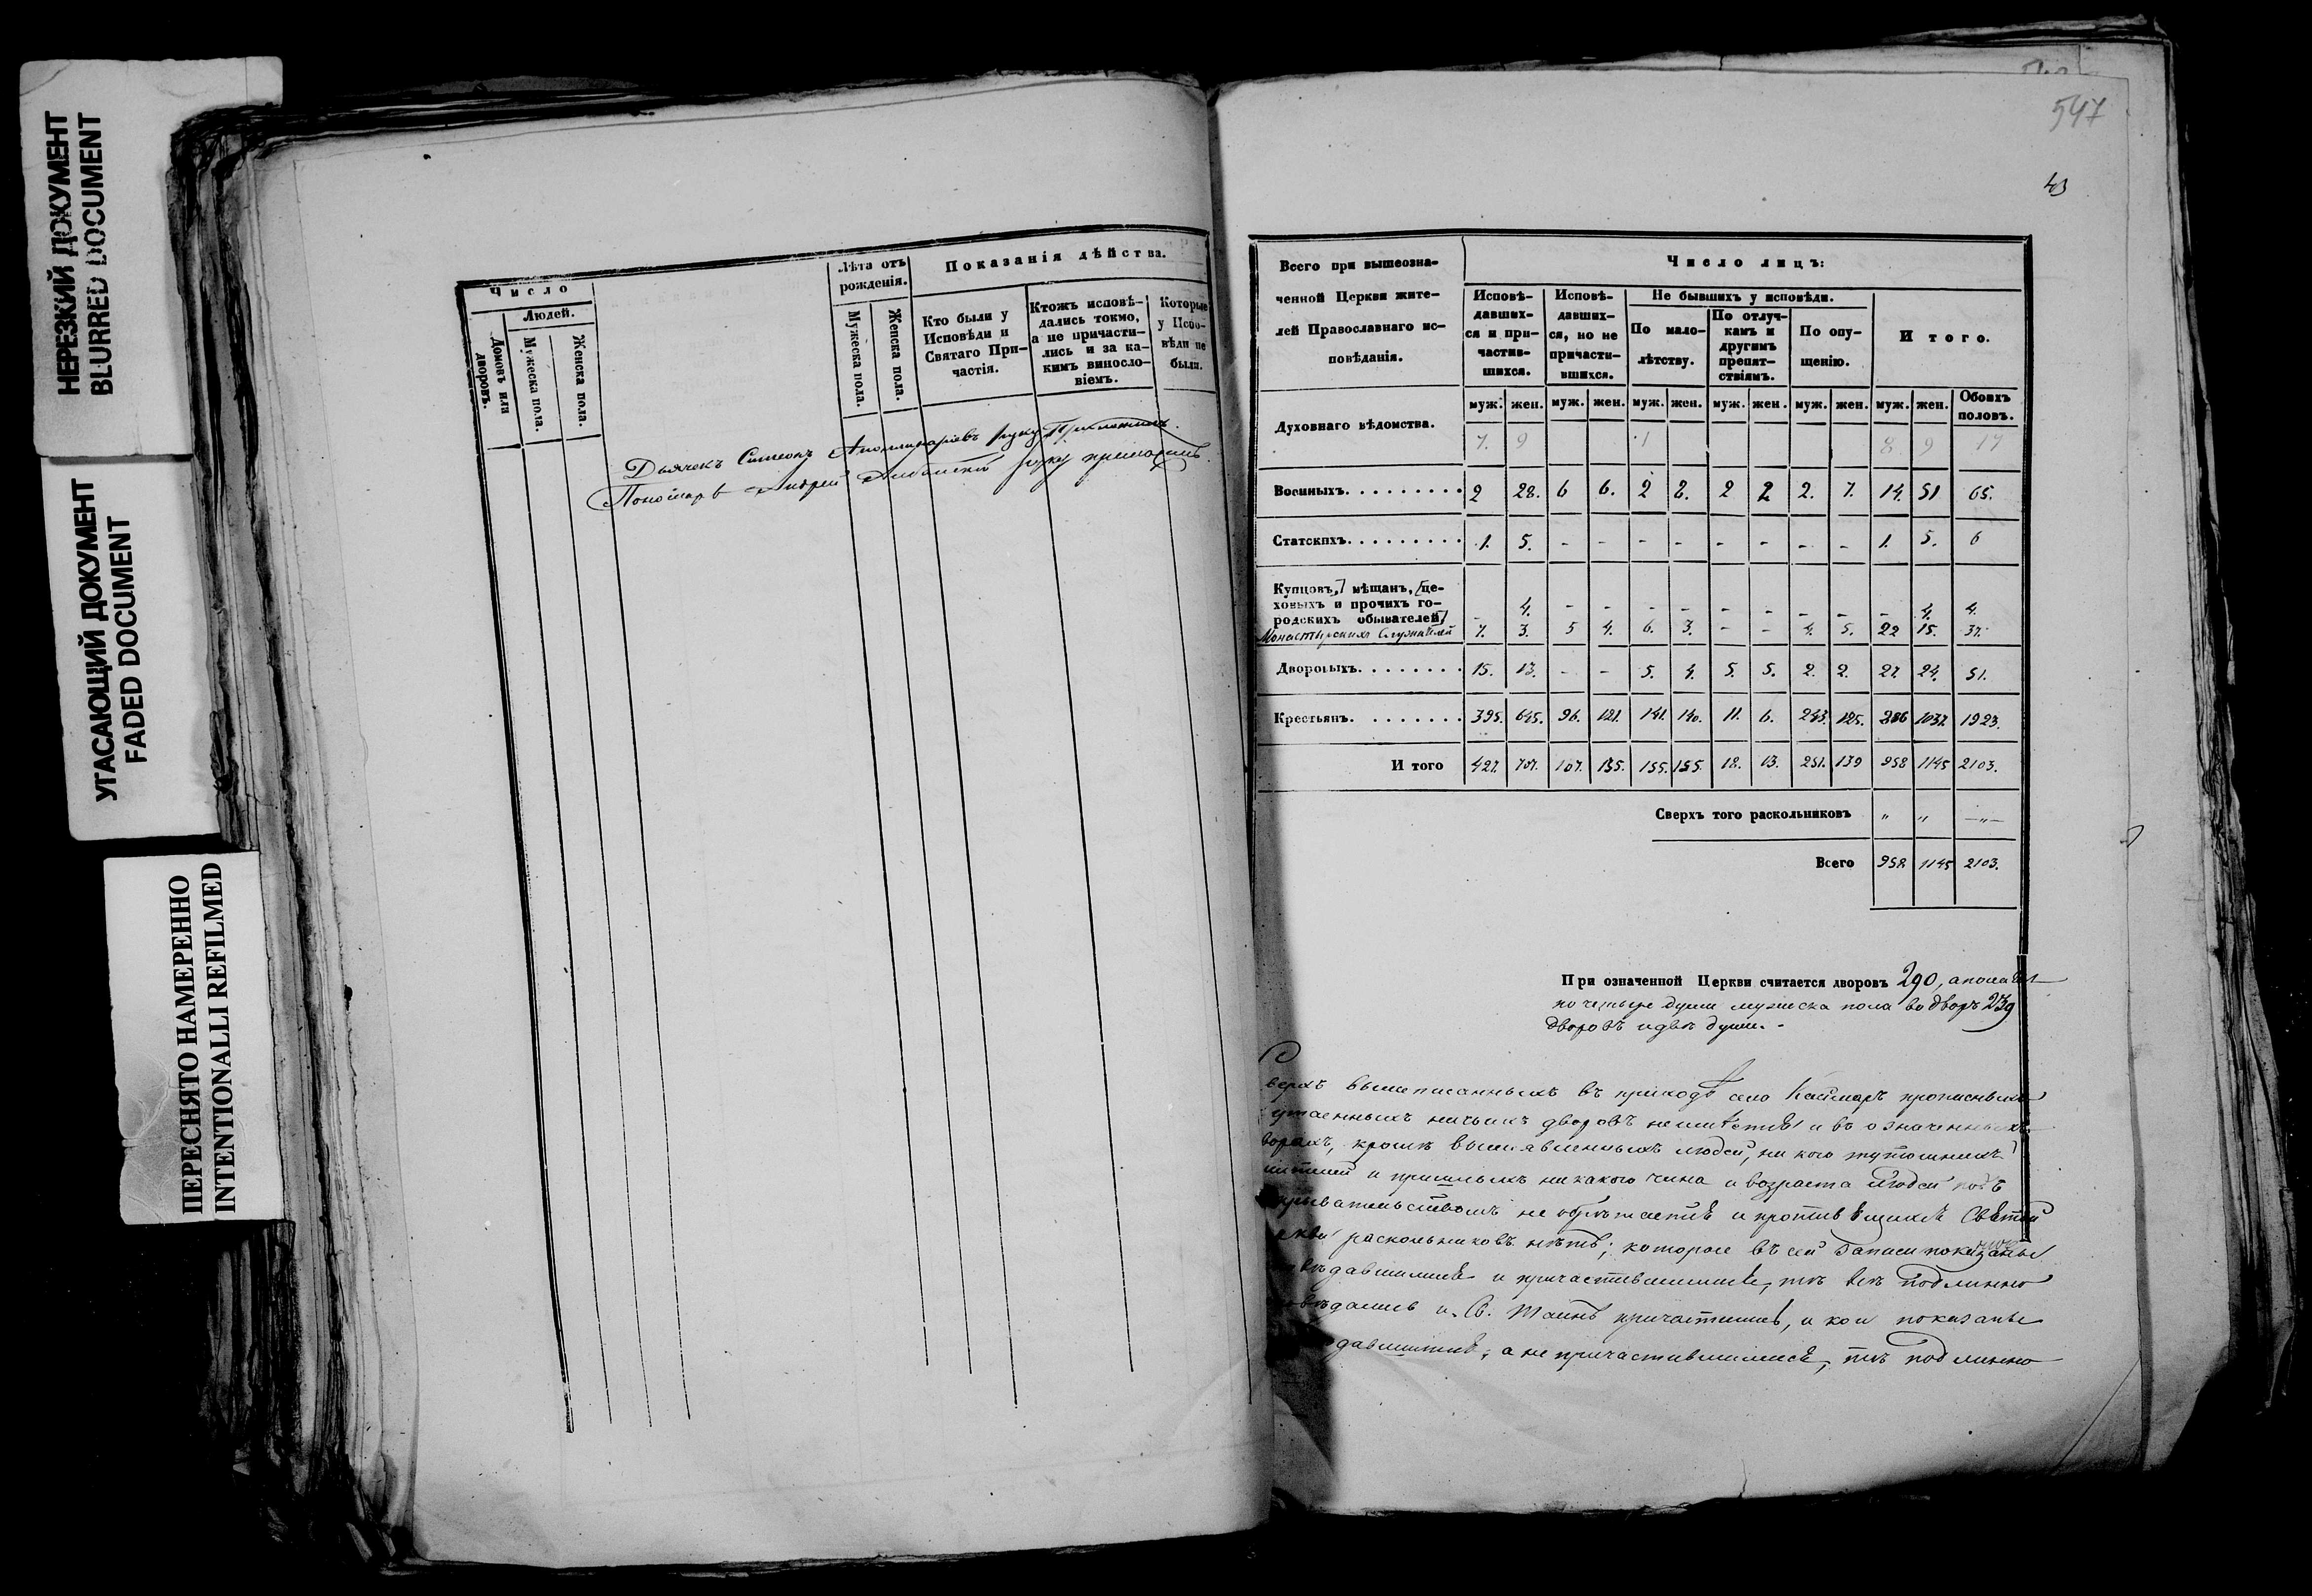 НЕРЕЗКИЙ ДОКУМЕНТ
BLURRED DOCUMENT
УГАСАЮЩИЙ ДОКУМЕНТ
FADED DOCUMENT
ПЕРЕСНЯТО НАМЕРЕННО
INTENTIONALLI REFILMED
Число
Людей.
Домовъ или дворовъ.
Мужеска пола.
Женска пола.
Лѣта отъ рожденія.
Мужеска пола.
Женска пола.
Показанія дѣйства.
Кто были у Исповѣди и Святаго Причастія.
Ктожъ исповѣдались токмо, а не причастились и за какимъ винословіемъ.
Которые у Исповѣди не были.
Дьячекъ Симеонъ руку приложилъ.
Пономарь Андрей руку приложилъ.
547
43
Всего при вышеозна-
ченной Церкви жите-
лей Православнаго ис-
повѣданія.
Число лицъ:
Исповѣ-
давших-
ся и при-
частив-
шихся.
Исповѣ-
давших-
ся, но не
причасти-
вшихся.
Не бывшихъ у исповѣди.
По мало-
лѣтству.
По отлуч-
камъ и
другимъ
препят-
ствіямъ.
По опу-
щенію.
Итого.
муж. жен. муж. жен. муж. жен. муж. жен. муж. жен. муж. жен. Обоихъ половъ.
Духовнаго вѣдомства. 7. 9 1 8. 9 17
Военныхъ. 2 28. 6 6. 2 8. 2 2 2. 7. 14. 51 65.
Статскихъ. 1. 5. - - - - - - - - 1. 5. 6
Купцовъ, мѣщанъ, це-
ховыхъ и прочихъ го-
родскихъ обывателей - 4. - - - - - - - - - 4. 4.
Монастырскихъ служителей 7. 3. 5 4. 6. 3. - - 4. 5. 22 15. 37.
Дворовыхъ. 15. 13. - - 5. 4. 5. 5. 2. 2. 27 24. 51.
Крестьянъ. 395. 645. 96. 121. 141. 140. 11. 6. 243. 125. 886 1037. 1923.
Итого 427. 707. 107. 135. 155. 155. 18. 13. 251. 139 958 1145 2103.
Сверхъ того раскольниковъ „ „ —„—
Всего 958. 1145 2103.
При означенной Церкви считается дворовъ 290, а полагая
по четыре души мужеска пола во дворъ 239
дворовъ и двѣ души. -
Сверхъ вышеписанныхъ въ приходѣ села прописныхъ
утаенныхъ ничьихъ дворовъ не имѣется и въ означенныхъ
кромѣ вышеявленныхъ людей, ни кого тутошнихъ
и пришлыхъ никакого чина и возраста людей подъ
не обрѣтается и противящихся Святой
раскольниковъ нѣтъ; которые въ сей записи показаны
и причастившимися, тѣ всѣ подлинно
и Св. Таинъ причастились, а кои показаны
а не причастившимися, тѣ подлинно